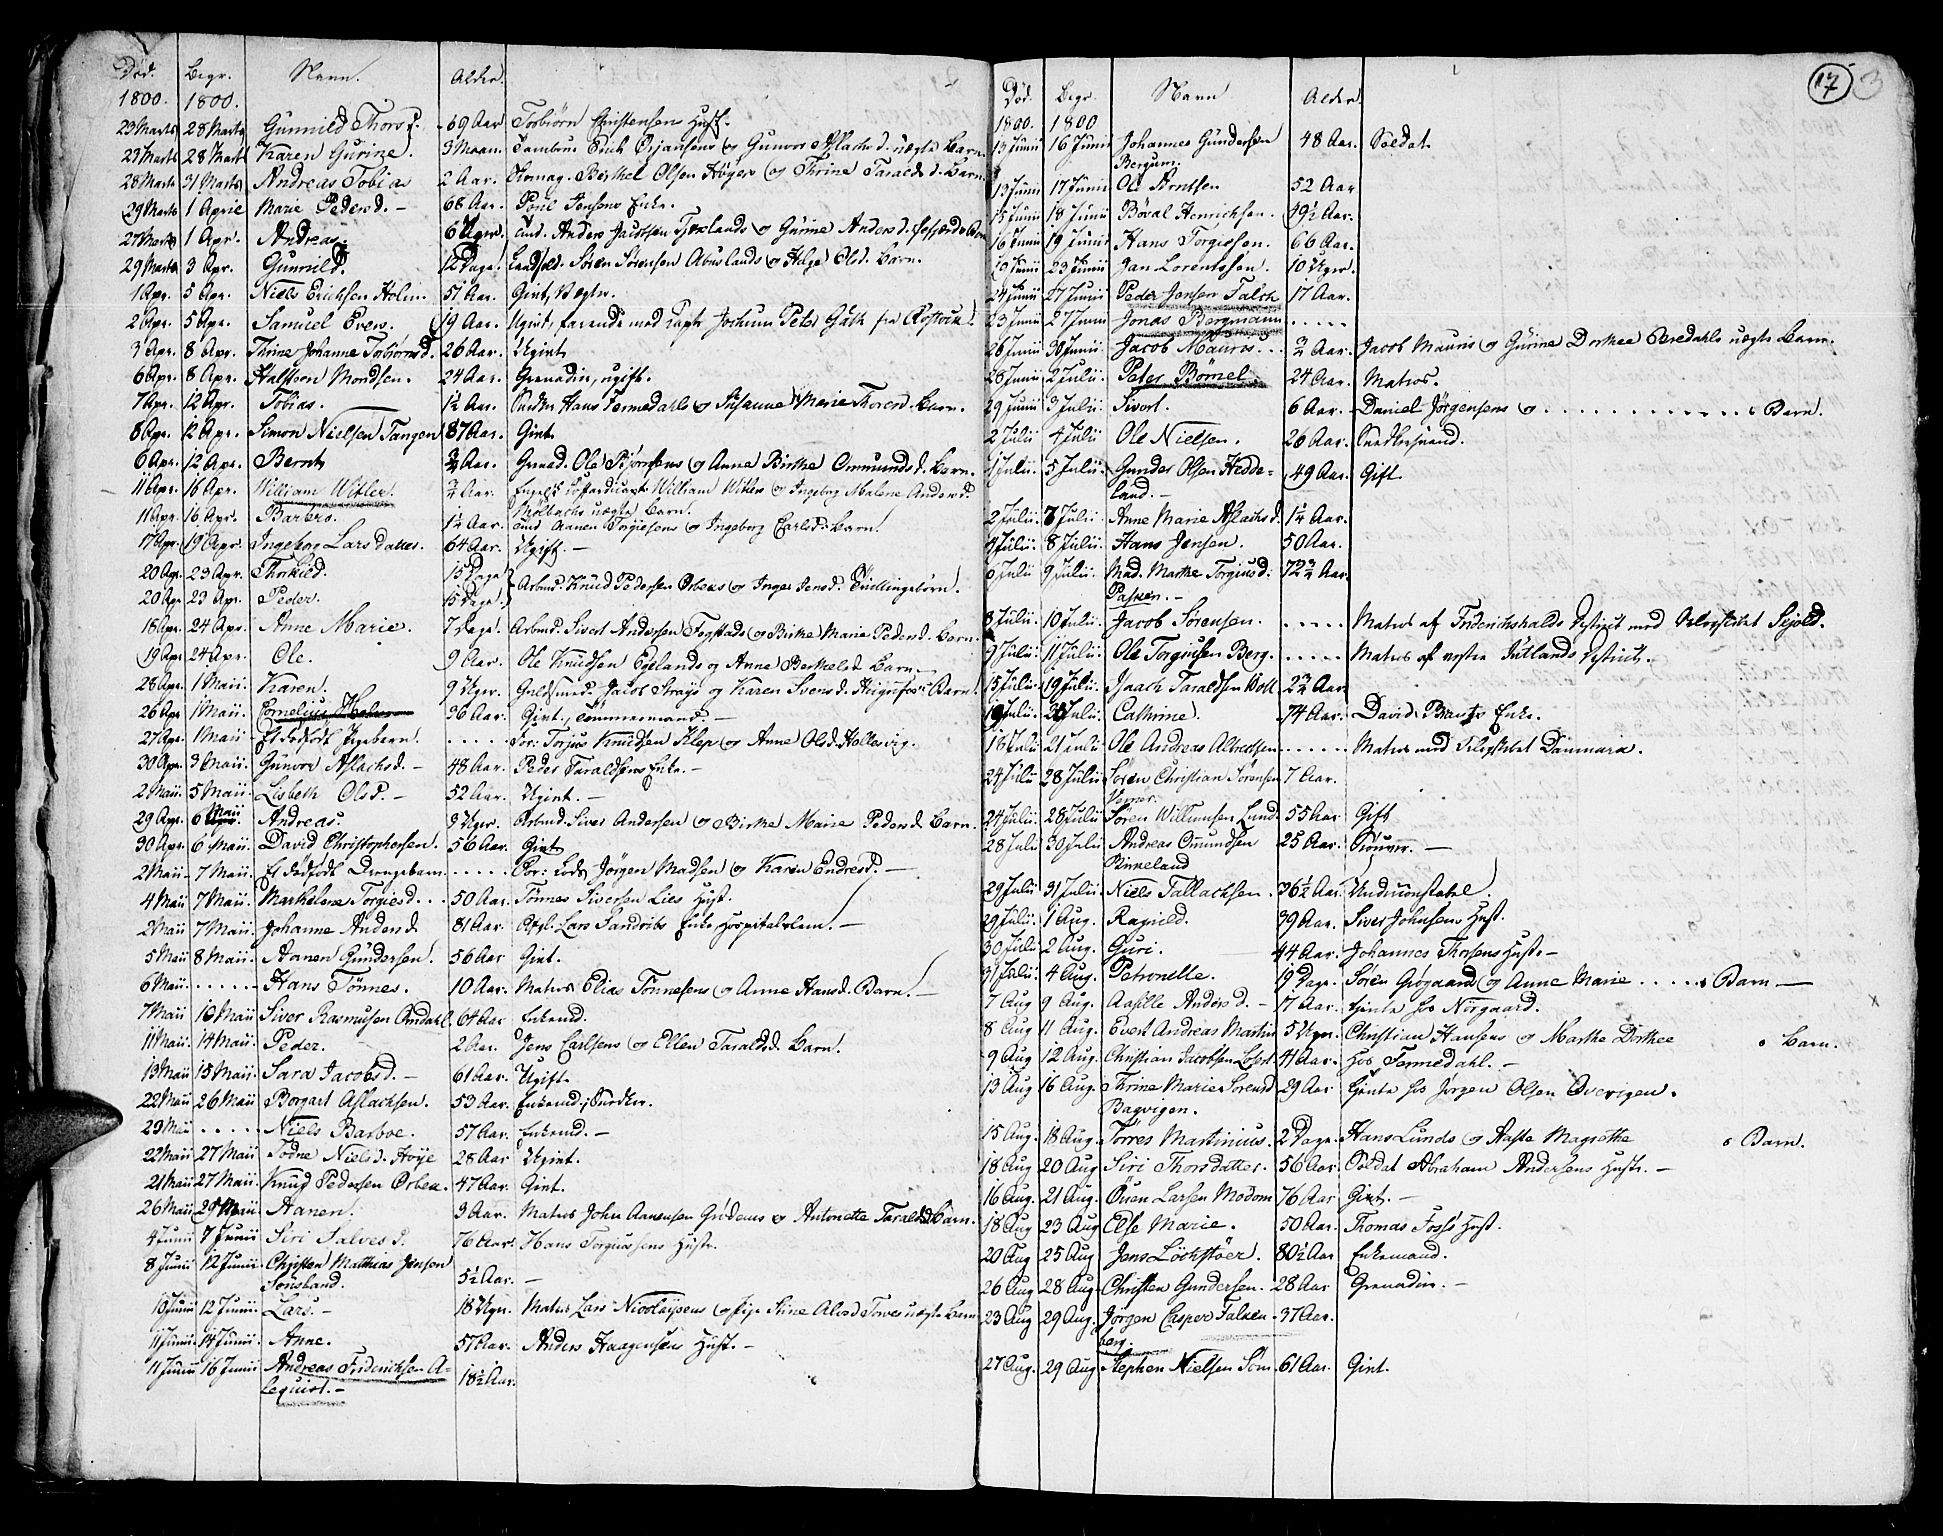 Død. Begr. Navn. Alder.
1800. 1800.
23 Marts 28 Marts Gunnild Thorsd. 69 Aar Torbiörn Christensens Hust.
23 Marts 28 Marts Karen Gurine. 3 Maan. Tambour Erich Ørjansens og Gunvor Aslachsd. uægte Barn.
28 Marts 31 Marts Andreas Tobias 2 Aar. Berthel Olsen Höyer og Thrine Taraldsd. Barn.
29 Marts 1 April Marie Pedersd. - 68 Aar. Poul Jensens Enke.
27 Marts 1 Apr. Andreas. 6 Uger. Anders Jacobsen Tjøslands og Gurine Andersd.
29 Marts 3 Apr. Gunnild. 12 Dage. Sören Sörensen Abuslands og Helge Olsd. Barn.
1 Apr. 5 Apr. Niels Erichsen Holm. 51 Aar. Gift, Vægter.
2 Apr. 5 Apr. Samuel Evers. 19 Aar. Ugift, farende med Capt. Jochum Peter Guth fra Rostock.
3 Apr. 8 Apr. Thrine Johanne Torbiörnsd. 26 Aar. Ugift
6 Apr. 8 Apr. Halsteen Mondsen. 24 Aar. Grenadier, ugift.
7 Apr. 12 Apr. Tobias. 1½ Aar. Hans Fermedahls og Susanne Marie Thoresd. Barn.
8 Apr. 12 Apr. Simon Nielsen Tangen 87 Aar. Gift
6 Apr. 12 Apr. Bernt ¾ Aar. Grenad. Ole Biörnsens og Anne Birthe Ommundsd. Barn.
11 Apr. 16 Apr. William Witler. ¾ Aar. William Witlers og Ingeborg Malene Andersd.
Mölbachs uægte Barn.
11 Apr. 16 Apr. Barbro. 1¼ Aar. Aanen Torgiersens og Ingeborg Carlsd. Barn.
17 Apr. 19 Apr. Ingeborg Lars datter. 64 Aar. Ugift. -
20 Apr. 23 Apr. Thorkild. 15 Dage
20 Apr. 23 Apr. Peder. 15 Dage. Arbmd. Knud Pedersen Orbeks og Inger Jensd. Tvillingebörn.
18 Apr. 24 Apr. Anne Marie. 7 Dage. Arbmd. Sivert Andersen Forstads og Birthe Marie Pedersd. Barn.
19 Apr. 24 Apr. Ole. 9 Aar. Ole Knudsen Egelands og Anne Berthelsd. Barn.
28 Apr. 1 Maii. Karen. 9 Uger. Guldsmed Jacob Strays og Karen Svensd. Barn.
26 Apr. 1 Maii. Cornelius 36 Aar. Gift, Tömmermand. -
27 Apr. 1 Maii - Et dödfödt Pigebarn. ..... For: Torjus Knudsen Klep og Anne Olsd. Hallesvig.
30 Apr. 3 Maii. Gunvor Aslachsd. - 48 Aar. Peder Taraldsens Enke. -
2 Maii. 5 Maii. Lisbeth Olsd. - 52 Aar. Ugift. -
29 Apr. 6 Maii Andreas. 3 Uger. Arbmd. Siver Andersen og Birthe Marie Pedersd. Barn.
30 Apr. 6 Maii. David Christophersen. 56 Aar. Gift
2 Maii. 7 Maii. Et dödfödt Drengebarn ..... For: Lods Jörgen Madsen og Karen Endresd. -
4 Maii 7 Maii. Marthelene Torgiersd. 50 Aar. Tönnes Siversen Lies Hust.
2 Maii 7 Maii. Johanne Andersd. 81 Aar. Lars Sandvihs Enke Hospitalslem. -
5 Maii 8 Maii. Aanen Gundersen. 56 Aar Gift.
6 Maii ..... Hans Tönnes. 10 Aar. Matros Elias Tönnesens og Anne Hansd. Barn. -
7 Maii 10 Maii Siver Rasmusen Omdahl. 64 Aar Enkemd.
11 Maii. 14 Maii. Peder. 2 Aar. Jens Carlsens og Ellen Taraldsd. Barn.
13 Maii 15 Maii. Sara Jacobsd. - 61 Aar. Ugift
22 Maii 26 Maii Borgart Aslachsen. 53 Aar. Enkemd, Snedker.
23 Maii ..... Niels Barboe. 57 Aar. Enkemd. -
22 Maii 27 Maii Todne Nielsd. Höye 28 Aar Ugift.
21 Maii 27 Maii. Knud Pedersen Orbek. 47 Aar. Gift.
26 Maii 29 Maii. Aanen. 3 Aar. Matros John Aanensen Grödems og Antonette Taraldsd. Barn.
4 Junii 7 Junii Siri Salvesd. 76 Aar. Hans Torgiussens Hustr.
8 Junii 12 Junii Christen Matthias Jensen
Sönsland. 5½ Aar. -
10 Junii 12 Junii. Lars. - 18 Uger. Matros Lars Nicolaisens og Pige Stine Alvesd. Torves uægte Barn
11 Junii. 14 Junii. Anne. 57 Aar. Anders Haagensens Hust. -
11 Junii 16 Junii. Andreas Friderichsen A=
lequist. - 18½ Aar.
17
3
Död. Begr. Navn Alder
1800. 1800
13 Junii 16 Junii Johannes Gundersen 48 Aar. Soldat
Bergum.
13 Junii 17 Junii Ole Arntsen 52 Aar
15 Junii 18 Junii Böval Henrichsen. 49½ Aar.
16 Junii 19 Junii Hans Torgiesen. 66 Aar.
19 Junii 23 Junii Jan Lorentssen. 10 Uger.
24 Junii 27 Junii Peder Jensen Falck 17 Aar.
23 Junii 27 Junii Jonas Bergmann .....
26 Junii 30 Junii. Jacob Mauris. ¾ Aar. Jacob Mauris og Gurine Dorthea Bredahls uægte Barn.
28 Junii 2 Julii. Peter Bömel. 24 Aar. Matros.
29 Junii 3 Julii. Sivert. 6 Aar. Daniel Jörgensens og .......... Barn.
2 Julii 4 Julii Ole Nielsen. 26 Aar. Snedkersvend.
1 Julii. 5 Julii. Gunder Olsen Hedde= 49 Aar. Gift
land. -
2 Julii. 7 Julii. Anne Marie Aslachsd. 1¼ Aar.
4 Julii. 8 Julii. Hans Jensen. 50 Aar.
6 Julii 9 Julii. Mad. Marthe Torgiusd. 72¾ Aar.
8 Julii. 10 Julii. Jacob Sörensen. ..... Matros af Friderichshalds District med Sejold.
9 Julii. 11 Julii. Ole Torgiusen Berg. ..... Matros af vestre Jutlands District.
15 Julii. 19 Julii. Isach Taraldsen Boll 2¾ Aar
19 Julii. 21 Julii. Cathrine. 74 Aar. David Enke.
18 Julii 21 Julii. Ole Andreas Albretsen ..... Matros med Danmark.
24 Julii 28 Julii Sören Christian Sörensen 7 Aar.
24 Julii. 28 Julii Sören Willumsen Lund. 55 Aar Gift
28 Julii 30 Julii Andreas Ommundsen 25 Aar. -
Rinneland
29 Julii 31 Julii. Niels Tallachsen. 36½ Aar. Underconstabel.
29 Julii. 1 Aug. Ragnild. 39 Aar. Siver Johnsens Hust.
30 Julii 2 Aug. Guri. 44 Aar. Johannes Thorsens Hust. -
31 Julii. 4 Aug. Petronelle. 19 Dage. Sören Grögaard og Anne Marie ..... Barn -
7 Aug 9 Aug. Aasille Andersd. - 17 Aar. Hos Nörgaard.
8 Aug 11 Aug. Evert Andreas Martin 5 Uger. Christian Hansens og Marthe Dorthee Barn.
9 Aug 12 Aug. Christian Jacobsen 41 Aar. hos Fermedahl. -
13 Aug 16 Aug. Thrine Marie Sörensd. 29 Aar hos Jörgen Olsen Overigen.
Bagvigen.
15 Aug. 18 Aug. Torres Martinius. 2 Dage. Hans Lunds og Aaste Magrethe Barn.
18 Aug 20 Aug Siri Thorsdatter. 56 Aar. Soldat Abraham Andersens Hustr. -
16 Aug. 21 Aug. Ouen Larsen Modom 76 Aar Gift. -
18 Aug 23 Aug Else Marie. 50 Aar. Thomas Foss's Hust.
20 Aug 25 Aug Jens Löchstöer. 80½ Aar Enkemand.
26 Aug 28 Aug. Christen Gundersen. 28 Aar Grenadier. -
23 Aug 29 Aug. Jörgen Casper Falken= 37 Aar.
berg.
27 Aug. 29 Aug Stephen Nielsen Som 61 Aar. Gift.